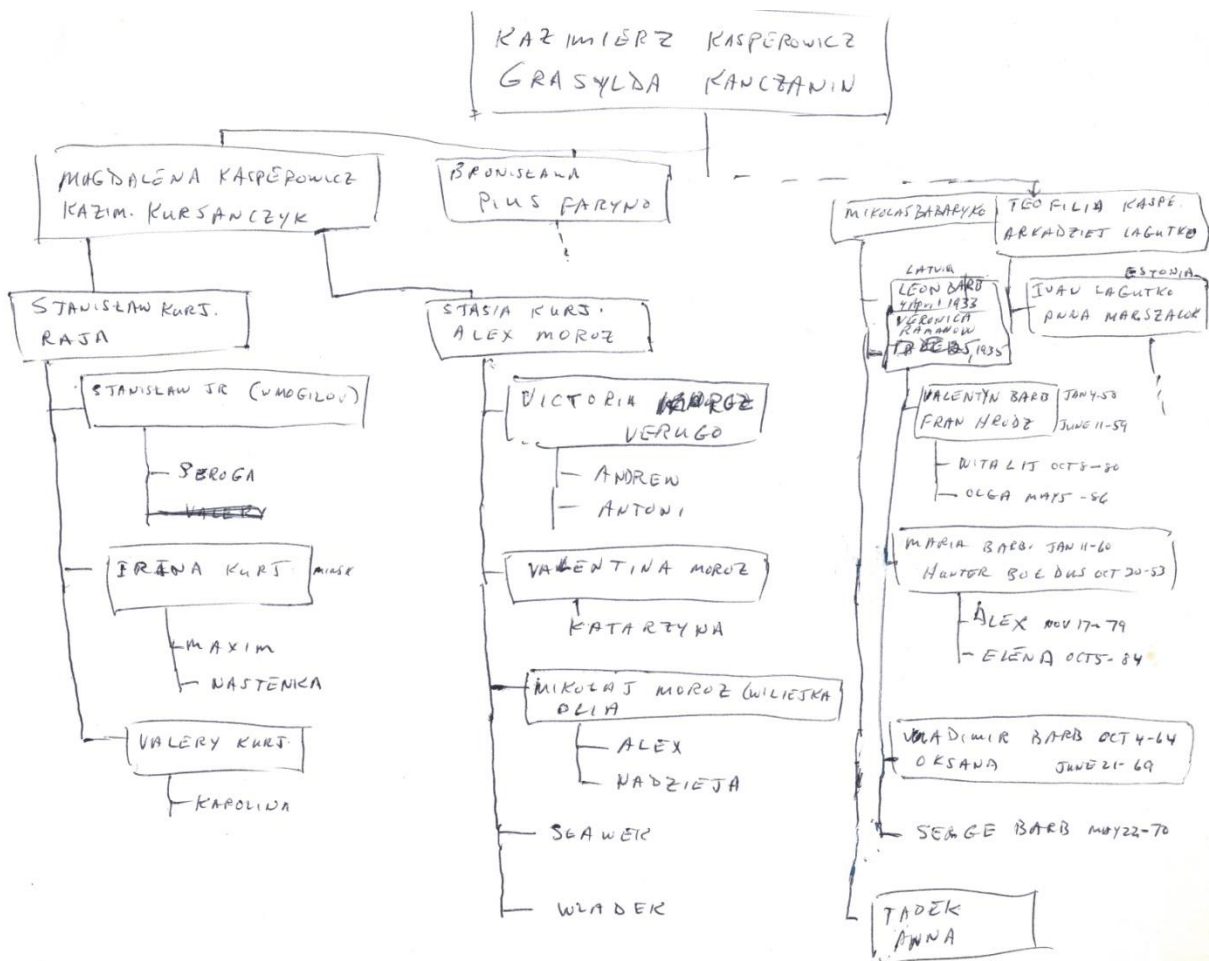 KAZIMIERZ KASPEROWICZ
GRASYLDA KANCZANIN
MAGDALENA KASPEROWICZ
KAZIM. KURSANCZYK
BRONISŁAWA
PIUS FARYNO
MIKOLAS BABARYKO
TEOFILIA KASPE.
ARKADZIEJ LAGUTKO
STANISŁAW KURJ.
RAJA
STANISŁAW JR (W MOGILOV)
SEROGA
VALERY
IRENA KURJ. MINSK
MAXIM
NASTENKA
VALERY KURJ.
KAROLINA
STASIA KURJ.
ALEX MOROZ
VICTORIA
VERUGO
ANDREW
ANTONI
VALENTINA MOROZ
KATARZYNA
MIKOŁAJ MOROZ (WILIEJKA
OLIA
ALEX
NADZIEJA
SŁAWEK
WŁADEK
LATVIA
LEON BARB
4 April 1933
VERONICA
RAMANOW
1935
ESTONIA
IVAN LAGUTKO
ANNA MARSZALOK
VALENTYN BARB JAN 4-58
FRAN HRUDZ JUNE 11-59
WITALIJ OCT 8-80
OLGA MAY 5-86
MARIA BARB. JAN 11-60
HUNTER BOLDUS OCT 20-53
ALEX NOV 17-79
ELENA OCT 5-84
VLADIMIR BARB OCT 4-64
OKSANA JUNE 21-69
SERGE BARB MAY 22-70
TADEK
ANNA